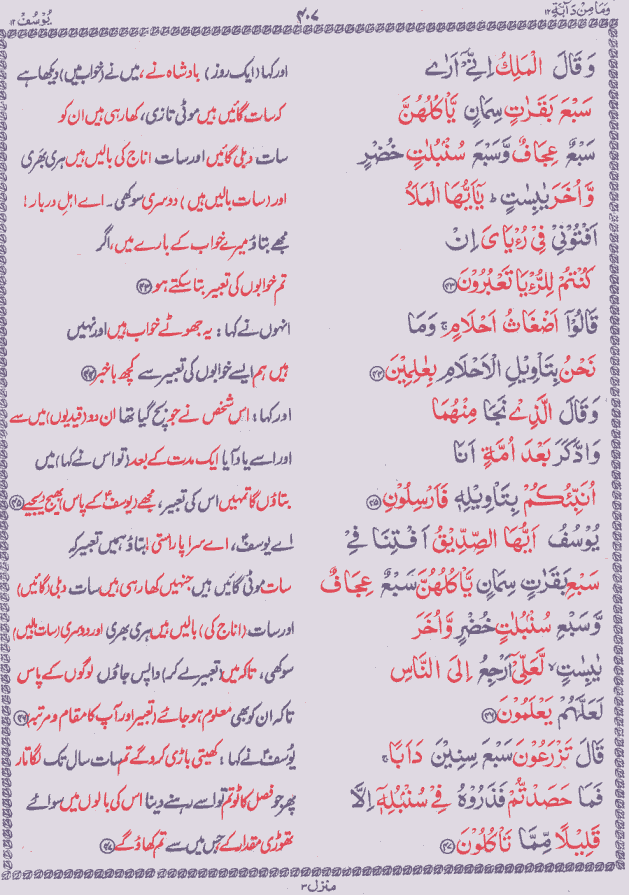 وَمَا مِنْ دَآبَّةٍ ۱۲
۴۰۷
یُوْسُف ۱۲
وَ قَالَ الْمَلِكُ اِنِّیْۤ اَرٰى
اور کہا (ایک روز) بادشاہ نے، میں نے (خواب میں) دیکھا ہے
سَبْعَ بَقَرٰتٍ سِمَانٍ یَّاْكُلُهُنَّ
کہ سات گائیں ہیں موٹی تازی، کھا رہی ہیں ان کو
سَبْعٌ عِجَافٌ وَّ سَبْعَ سُنْۢبُلٰتٍ خُضْرٍ
سات دبلی گائیں اور سات اناج کی بالیں ہیں ہری بھری
وَّ اُخَرَ یٰبِسٰتٍ ؕ یٰۤاَیُّهَا الْمَلَاُ
اور (سات بالیں ہیں) دوسری سوکھی۔ اے اہلِ دربار!
اَفْتُوْنِیْ فِیْ رُءْیَایَ اِنْ
مجھے بتاؤ میرے خواب کے بارے میں، اگر
كُنْتُمْ لِلرُّءْیَا تَعْبُرُوْنَ ﴿۴۳﴾
تم خوابوں کی تعبیر بتا سکتے ہو ﴿۴۳﴾
قَالُوْۤا اَضْغَاثُ اَحْلَامٍ ۚ وَ مَا
انہوں نے کہا: یہ جھوٹے خواب ہیں اور نہیں
نَحْنُ بِتَاْوِیْلِ الْاَحْلَامِ بِعٰلِمِیْنَ ﴿۴۴﴾
ہیں ہم ایسے خوابوں کی تعبیر سے کچھ باخبر ﴿۴۴﴾
وَ قَالَ الَّذِیْ نَجَا مِنْهُمَا
اور کہا: اس شخص نے جو بچ گیا تھا ان دو (قیدیوں) میں سے
وَ ادَّكَرَ بَعْدَ اُمَّةٍ اَنَا
اور اسے یاد آیا ایک مدت کے بعد (تو اس نے کہا) میں
اُنَبِّئُكُمْ بِتَاْوِیْلِهٖ فَاَرْسِلُوْنِ ﴿۴۵﴾
بتاؤں گا تمہیں اس کی تعبیر، مجھے (یوسفؑ کے پاس) بھیج دیجیے ﴿۴۵﴾
یُوْسُفُ اَیُّهَا الصِّدِّیْقُ اَفْتِنَا فِیْ
اے یوسفؑ، اے سراپا راستی! بتاؤ ہمیں تعبیر کہ
سَبْعِ بَقَرٰتٍ سِمَانٍ یَّاْكُلُهُنَّ سَبْعٌ عِجَافٌ
سات موٹی گائیں ہیں جنہیں کھا رہی ہیں سات دبلی (گائیں)
وَّ سَبْعِ سُنْۢبُلٰتٍ خُضْرٍ وَّ اُخَرَ
اور سات (اناج کی) بالیں ہیں ہری بھری اور دوسری (سات بالیں)
یٰبِسٰتٍ ۙ لَّعَلِّیْۤ اَرْجِعُ اِلَى النَّاسِ
سوکھی، تاکہ میں (تعبیر لے کر) واپس جاؤں لوگوں کے پاس
لَعَلَّهُمْ یَعْلَمُوْنَ ﴿۴۶﴾
تاکہ ان کو بھی معلوم ہو جائے (تعبیر اور آپ کا مقام و مرتبہ) ﴿۴۶﴾
قَالَ تَزْرَعُوْنَ سَبْعَ سِنِیْنَ دَاَبًا ۚ
یُوسفؑ نے کہا: کھیتی باڑی کرو گے تم سات سال تک لگاتار
فَمَا حَصَدْتُّمْ فَذَرُوْهُ فِیْ سُنْۢبُلِهٖۤ اِلَّا
پھر جو فصل کاٹو تم تو اسے رہنے دینا اس کی بالوں میں سوائے
قَلِیْلًا مِّمَّا تَاْكُلُوْنَ ﴿۴۷﴾
تھوڑی مقدار کے جس میں سے تم کھاؤ گے ﴿۴۷﴾
منزل ۳